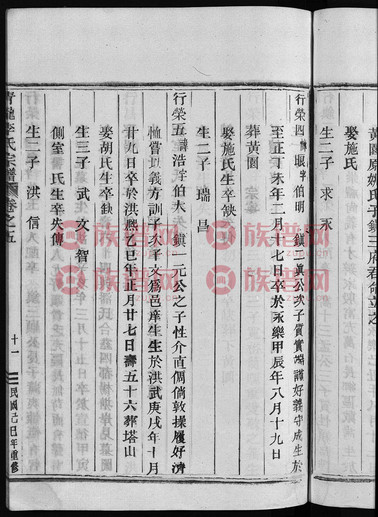 黃園原姚氏子鎮三府君命立之
娶施氏
生二子 求 永
行榮四 諱堰字伯明 鎮二眞公次子質實端謹好義守成生於
至正丁未年二月十七日卒於永樂甲辰年八月十九日
葬黃園
娶施氏生卒缺
生二子 瑞 昌
行榮五 諱浩字伯大 鎮二元公之子性介直倜儻敦操履好濟
恤嘗以義方訓子次子文爲邑庠生生於洪武庚戌年十月
廿九日卒於洪熙乙巳年正月廿七日壽五十六葬塔山
娶胡氏生卒缺
生三子 武 文 智
側室 氏生卒失傳
生二子 洪 信
李氏宗譜 卷之五
十一
民國己巳年重修
族譜网